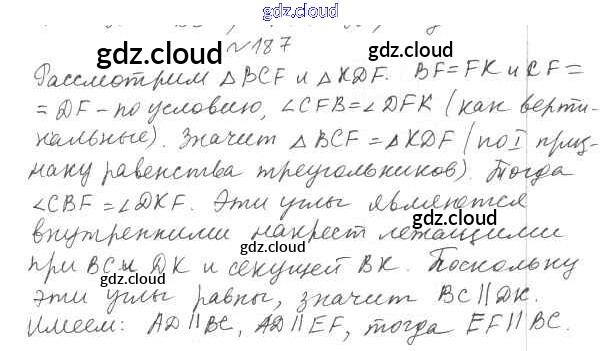 gdz.cloud
gdz.cloud
№187
gdz.cloud
Рассмотрим △BCF и △KDF. BF=FK и CF=
=DF-по условию, ∠CFB=∠DFK (как верти-
кальные). Значит △BCF=△KDF (по I приз-
наку равенства треугольников). Тогда
∠CBF=∠DKF. Эти углы являются
gdz.cloud
внутренними накрест лежащими
gdz.cloud
при BC и DK и секущей BK. Поскольку
gdz.cloud
эти углы равны, значит BC||DK.
Имеем: AD||BC, AD||EF, тогда EF||BC.